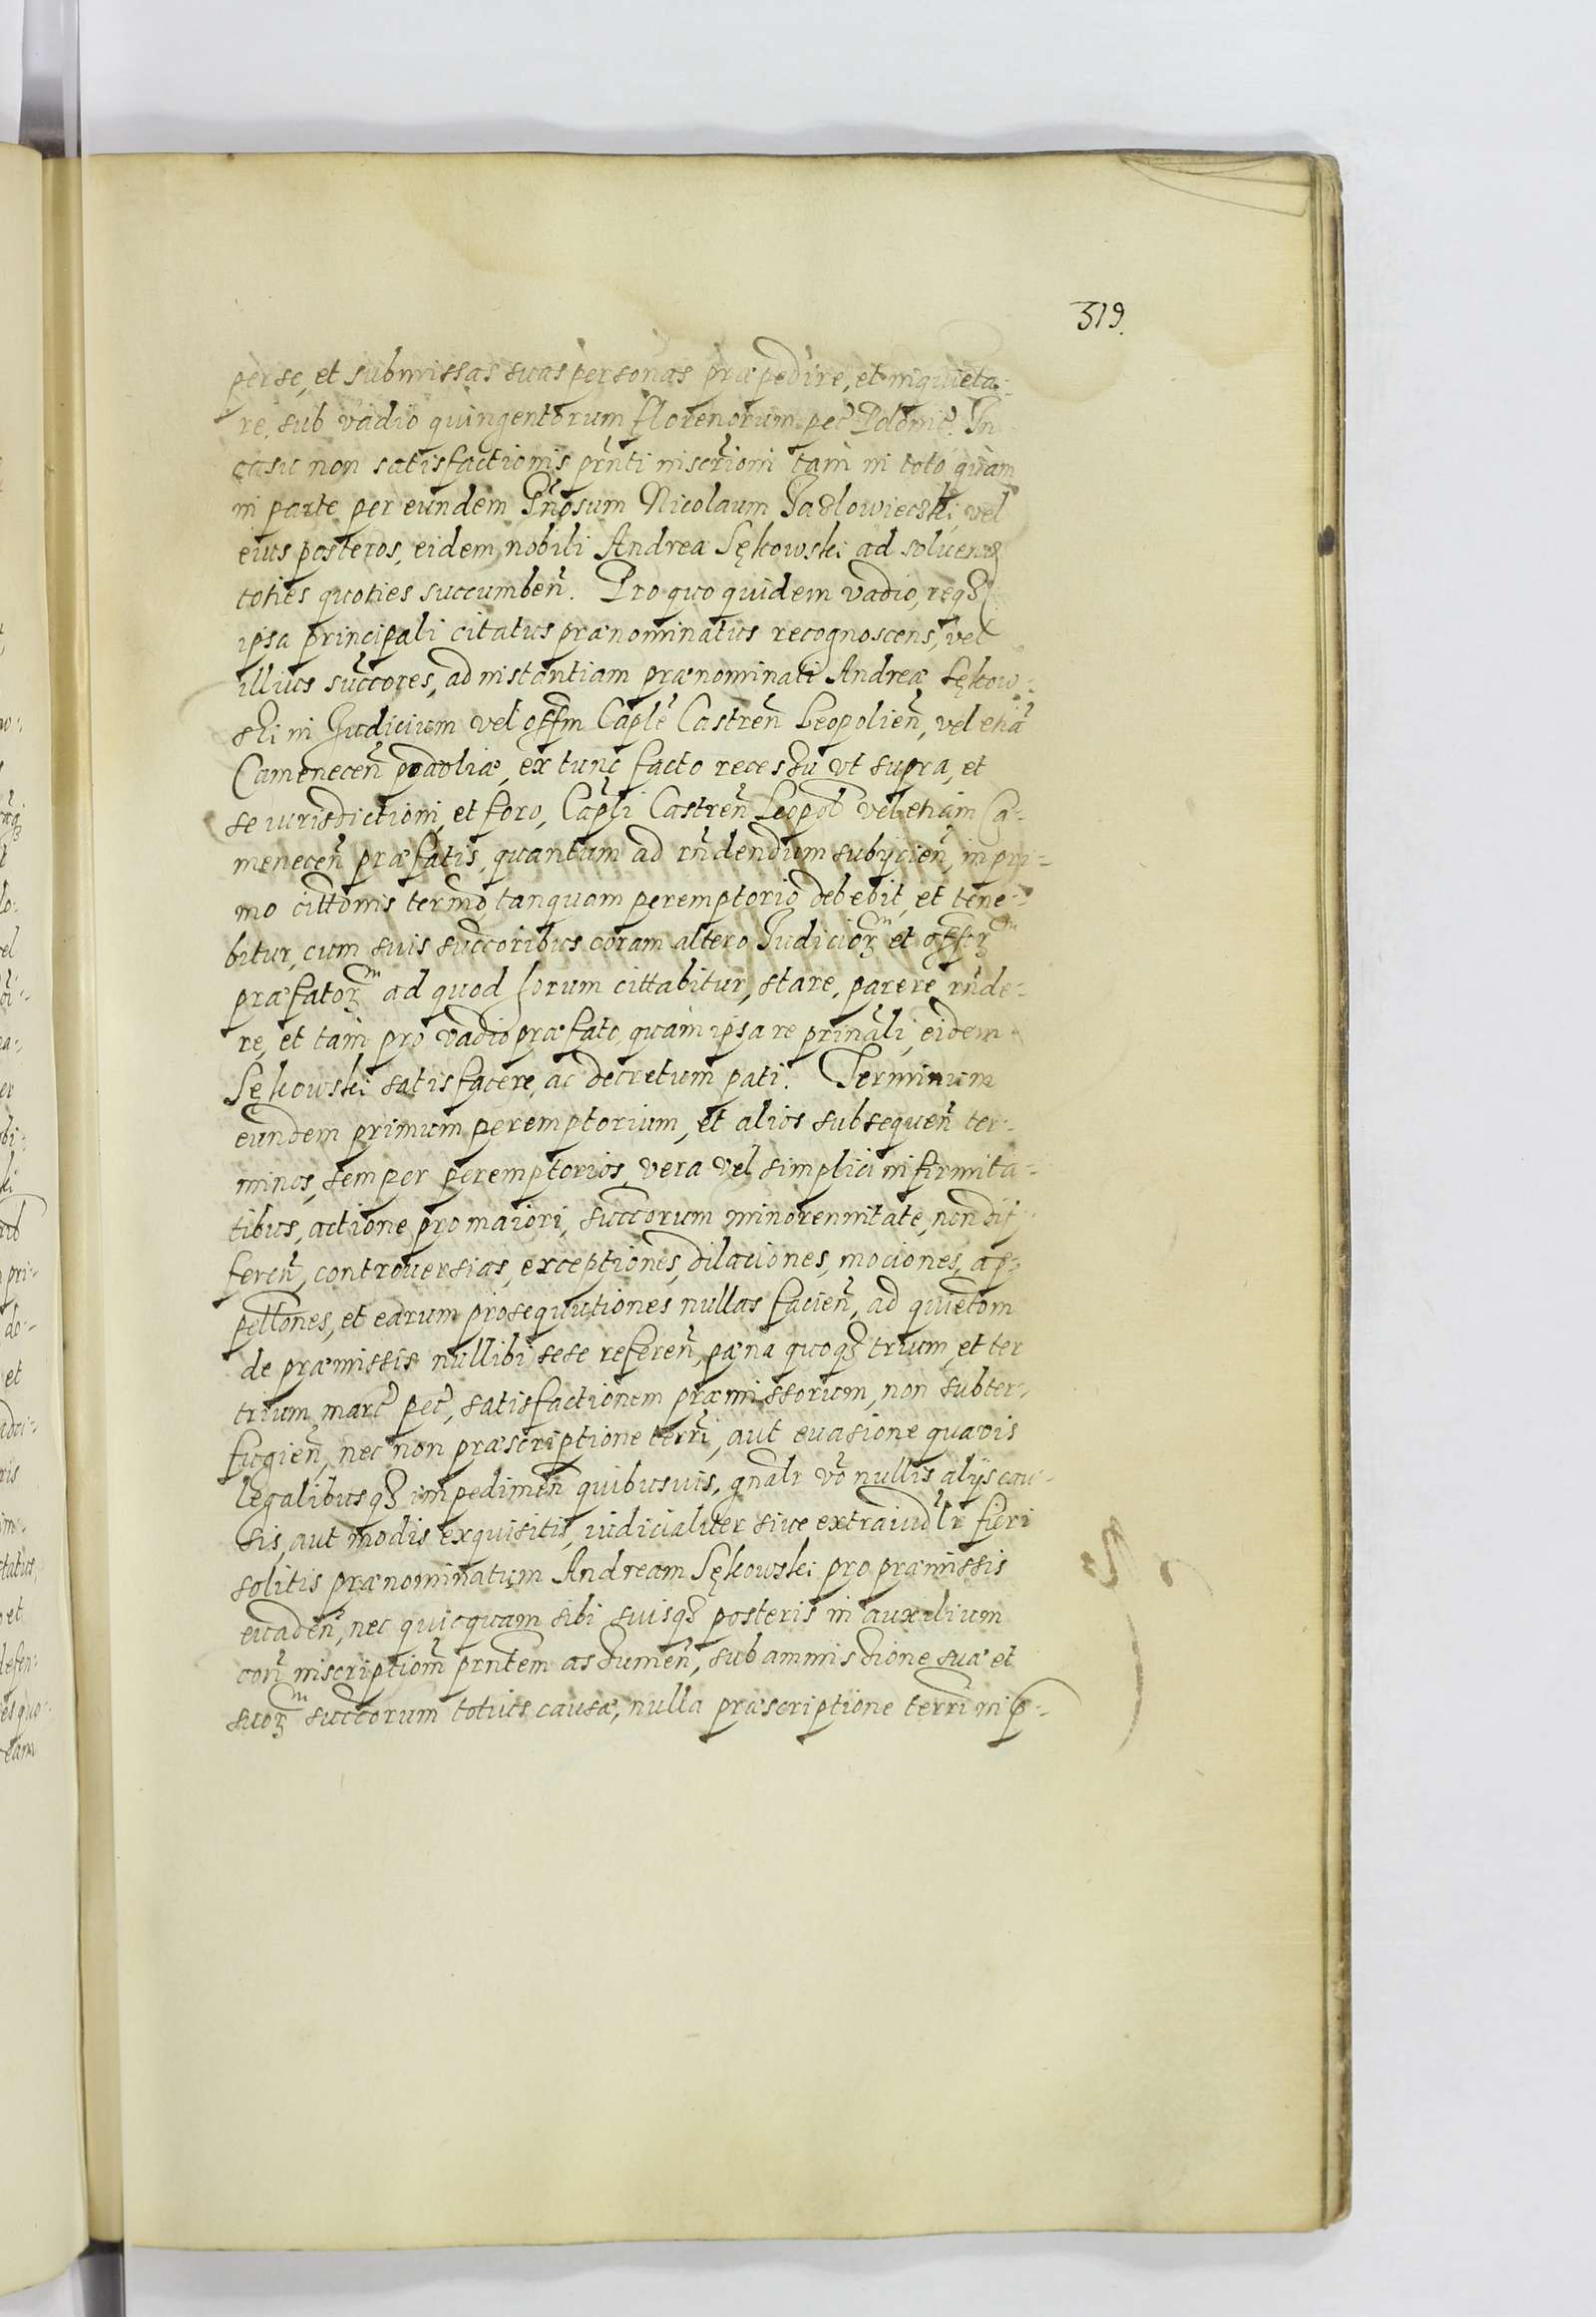 319.
per se, et submissas suas personas præpedire, et inquieta-
re, sub vadio quingentorum florenorum pec̃ Polonic̃. In
casu non satisfactionis pr̃nti inscr̃ioni tam in toto quam
in parte per eundem Gñosum Nicolaum Jazlowiecski, vel
eius posteros, eidem nobili Andreæ Sękowski ad soluend
toties quoties succumbeñ. Pro quo quidem vadio, reqz
ipsa principali citatus prænominatus recognoscens, vel
illius succores, ad instantiam prænominati Andreæ Sękow-
ski in Judicium vel offm Caplẽ Castreñ Leopolieñ, vel etiã
Cameneceñ podoliæ, ex tunc facto recessu vt supra, et
se iurisdictioni, et foro, Capli Castreñ Leopol vel etiam Ca-
meneceñ præfatis, quantum ad rñdendum subijcieñ, in pri-
mo cittonis termo, tanquam peremptorio debebit, et tene-
bitur, cum suis succoribus coram altero Judicioꝝ et offioꝝ
præfatoꝝ ad quod forum cittabitur, stare, parere rñde-
re, et tam pro vadio præfato, quam ipsa re prinali, eidem
Sękowski satisfacere, ac decretum pati. Terminum
eundem primum peremptorium, et alios subsequeñ ter-
minos, semper peremptorios, vera vel simplici infirmita-
tibus, actione pro maiori, succorum minorennitate, non dif-
fereñ, controuersias, exceptiones, dilaciones, mociones, ap-
pelltones, et earum prosequutiones nullas facieñ, ad quietõm
de præmissis nullibi sese refereñ, pæna quoqz trium, et ter
trium marc̃ pec̃, satisfactionem præmissorum, non subter-
fugieñ, nec non præscriptione terr̃i, aut euasione quavis
legalibusqz impedimeñ quibusuis, gnalr vo nullis alijs cau-
sis, aut modis exquisitis, iudicialiter siue extraiudlr fieri
solitis prænominatum Andream Sękowski pro præmissis
euadeñ, nec quicquam sibi suisqz posteris in auxilium
coñ inscriptioñ prñtem assumeñ, sub ammissione suæ et
suoꝝ succorum totius causæ, nulla præscriptione terr̃i in p-